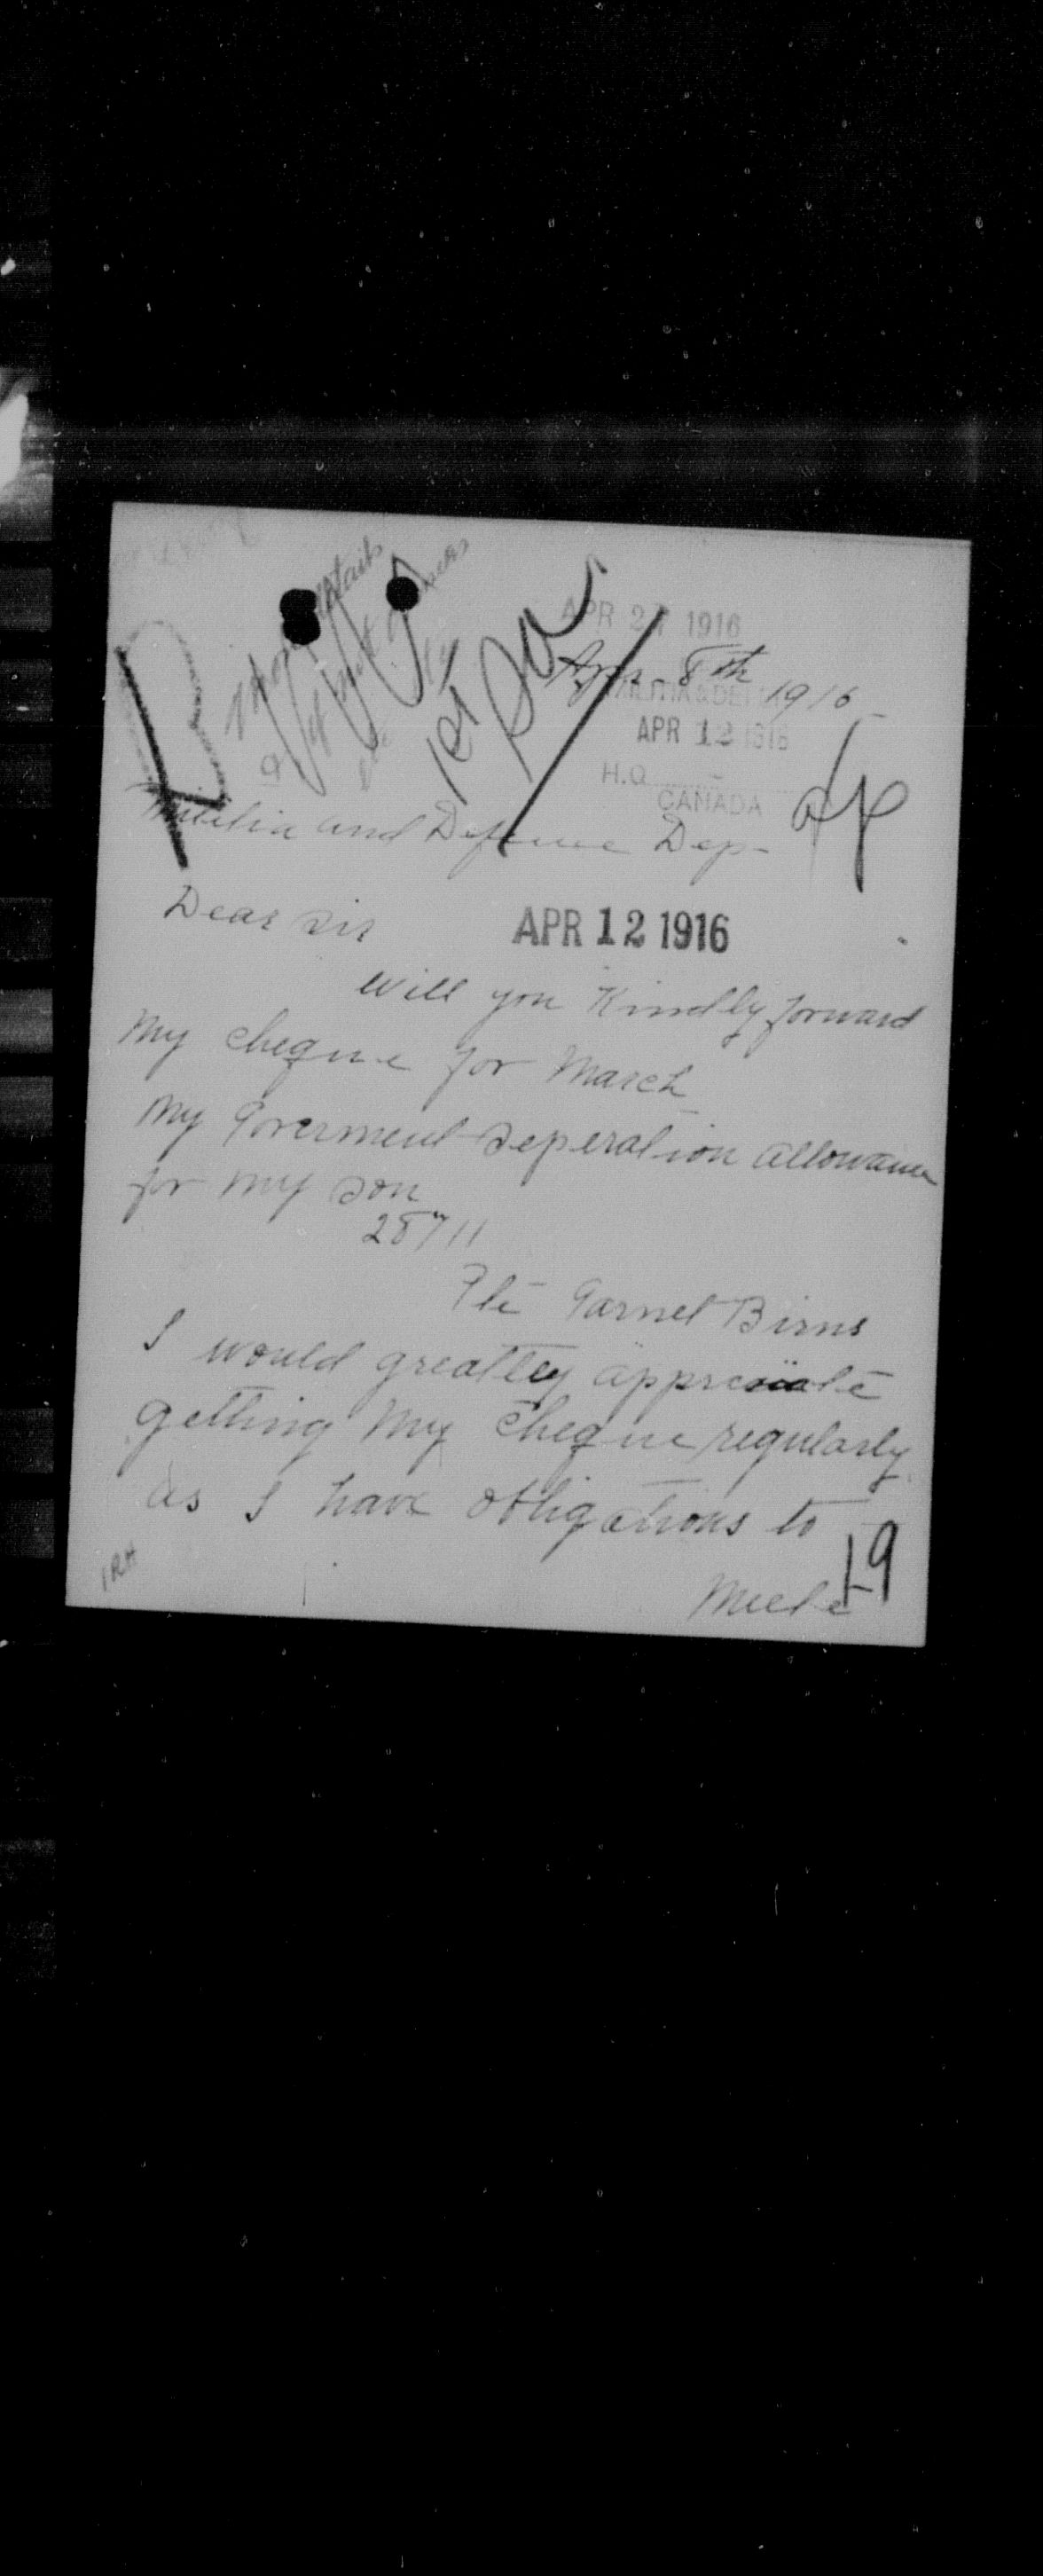 APR 27 1916
Apr. 8th 1916
MILITIA & DEF
APR 12 1916
H.Q.
CANADA
Militia and Defence Dep-
Dear Sir
APR 12 1916
Will you Kindly forward
My cheque for March
My Goverment Seperation allowance
for my son
28711
Pte Garnet Birns
I would greatley appreciate
getting My cheque regularly
as I have obligations to
Meet
19
IRH